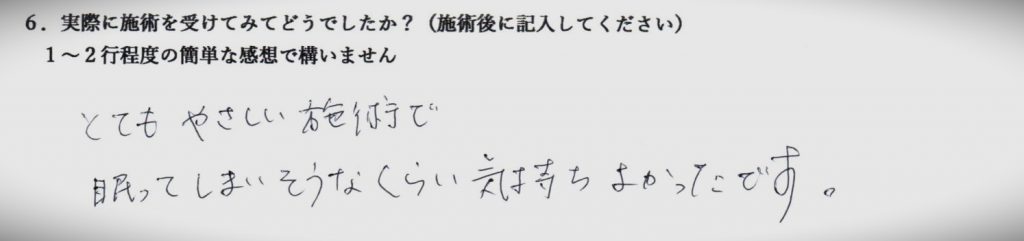 6．実際に施術を受けてみてどうでしたか？（施術後に記入してください）
1～2行程度の簡単な感想で構いません
とても やさしい 施術で
眠ってしまいそうなくらい 気持ち よかったです。